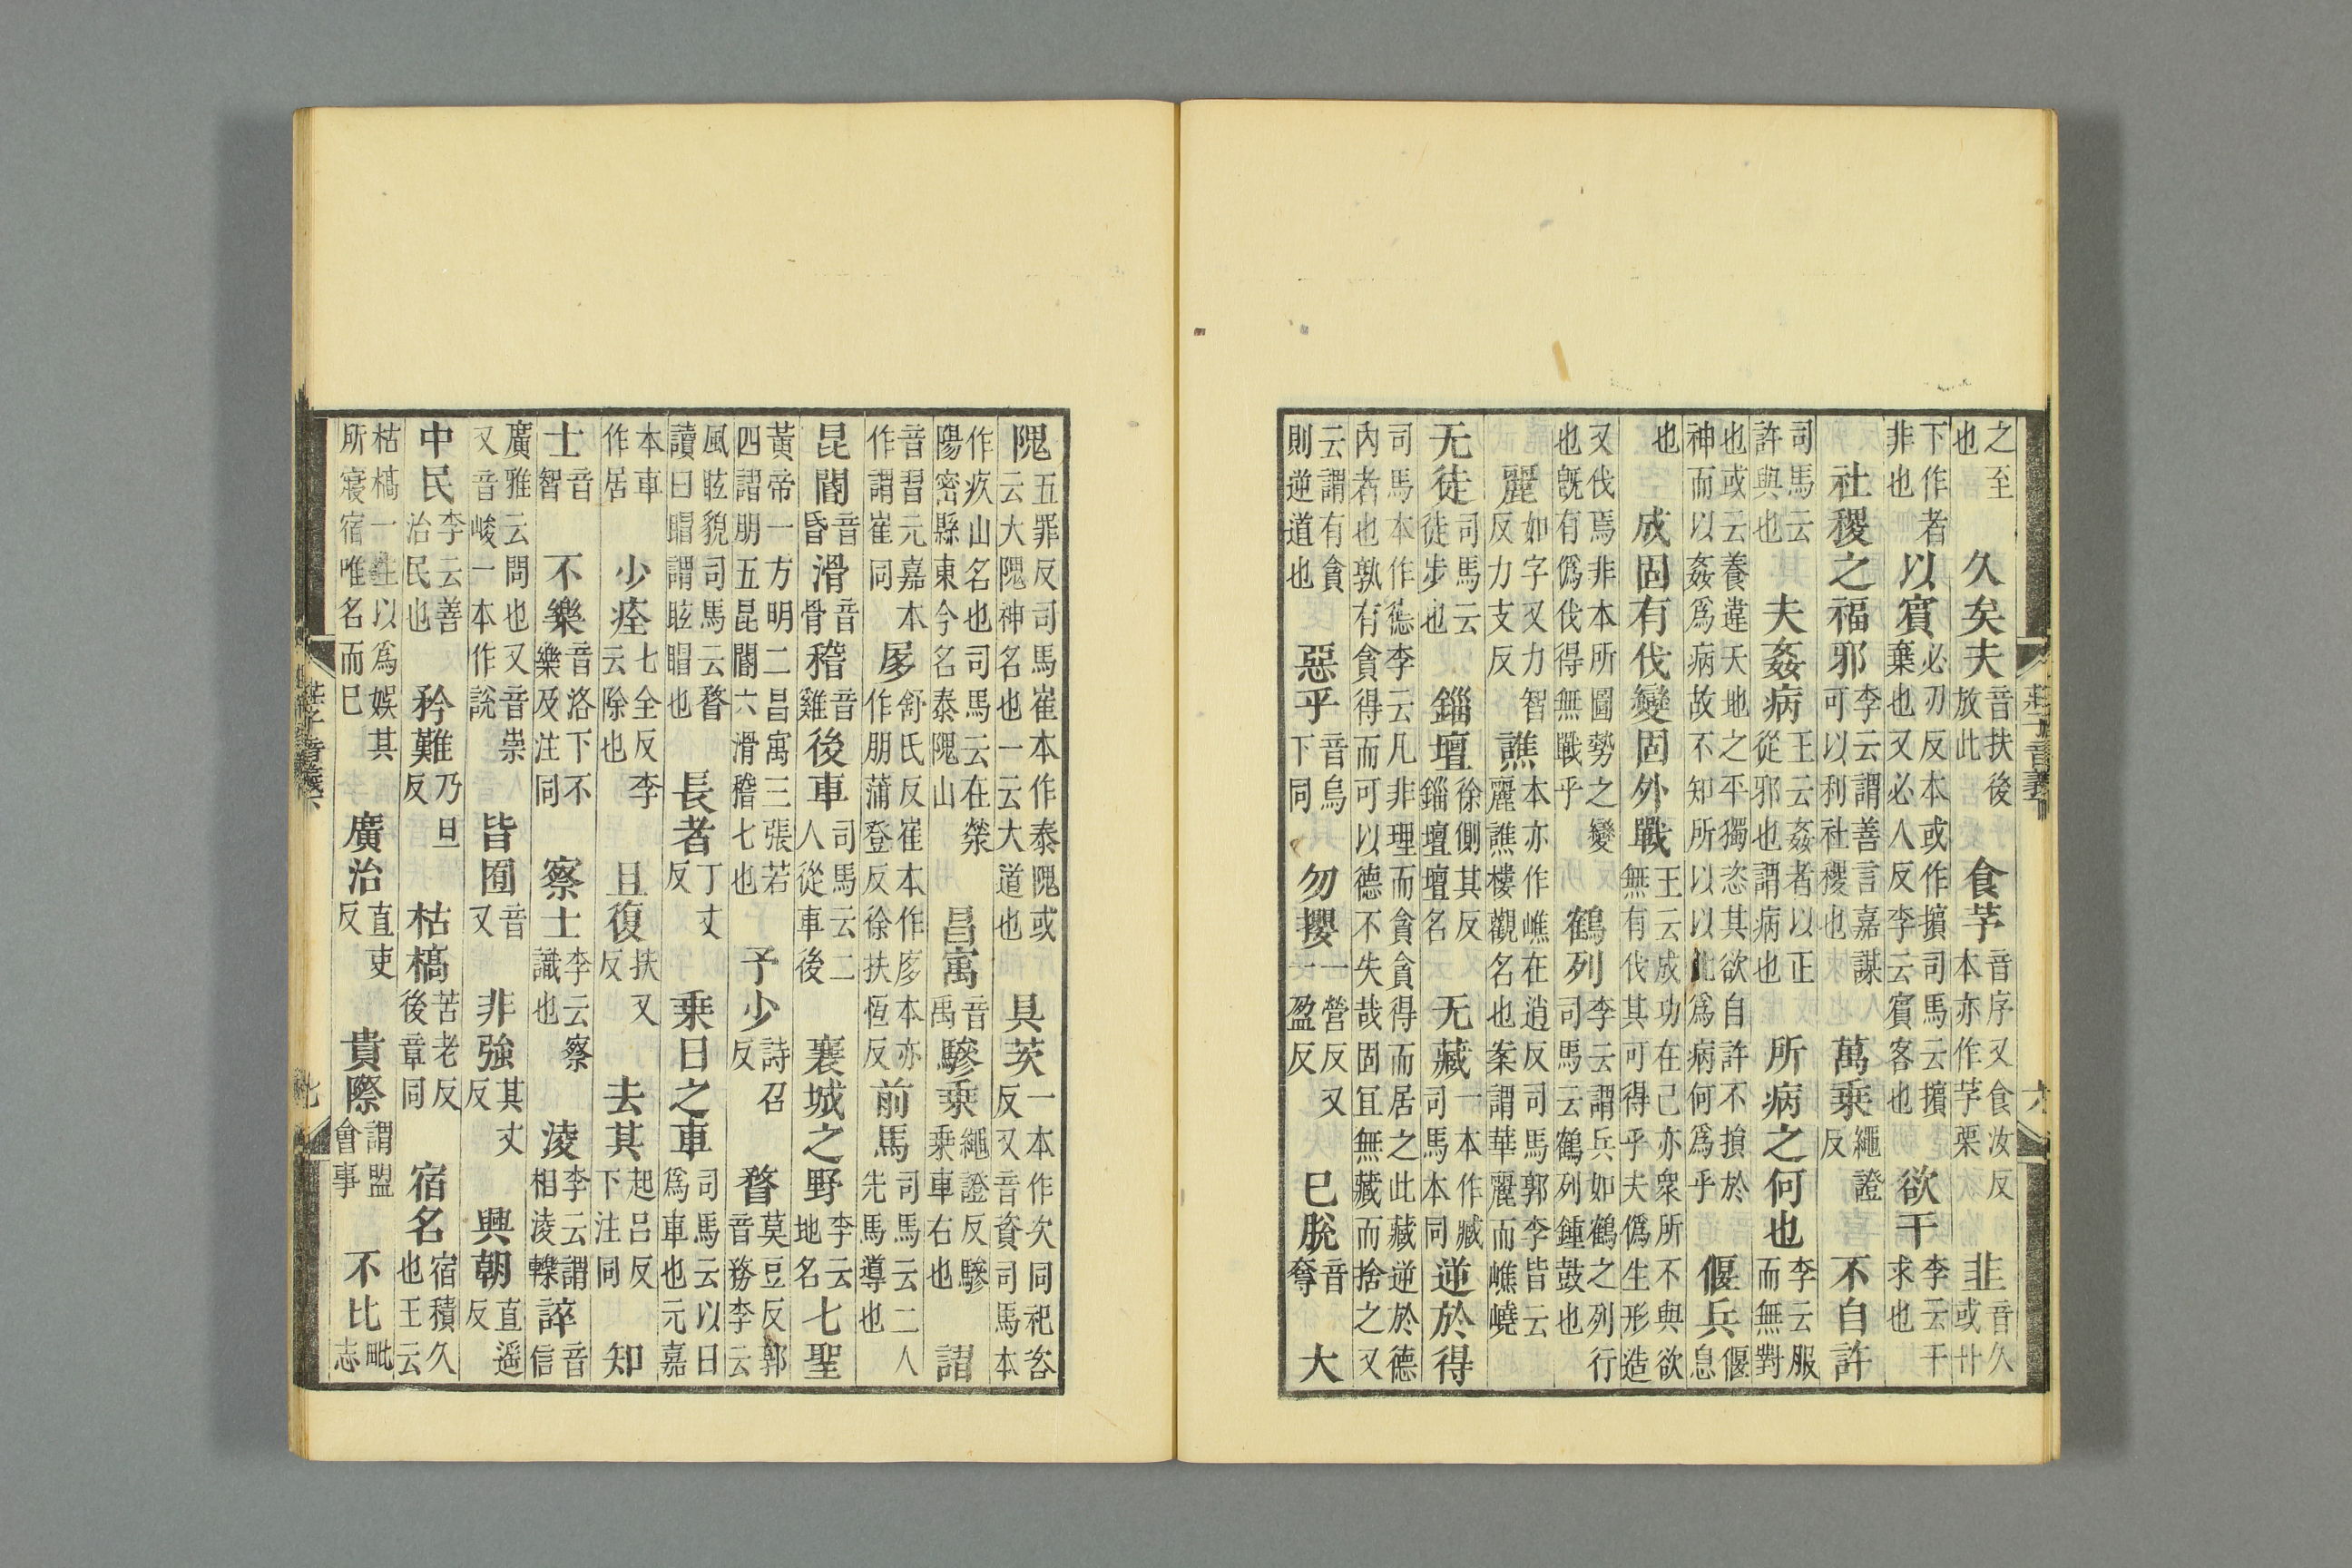 之至也久矣夫音扶後放此食芧音序又食汝反本亦作芧栗韭音久或艹
下作者非也以賓必刃反本或作擯司馬云擯棄也又必人反李云賓客也欲干李云干求也
社稷之福邪李云謂善言嘉謀可以利社稷也萬乘繩證反不自許
司馬云許與也夫姦病王云姦者以正從邪也謂病也所病之何也李云服而無對
也或云養違天地之平獨恣其欲自許不損於神而以姦爲病故不知所以以此爲病何爲乎偃兵偃息
也成固有伐變固外戰王云成功在己亦衆所不與欲無有伐其可得乎夫僞生形造
又伐焉非本所圖勢之變也旣有僞伐得無戰乎鶴列李云謂兵如鶴之列行司馬云鶴列鍾鼓也
麗如字又力智反力支反譙本亦作嶕在逍反司馬郭李皆云麗譙樓觀名也案謂華麗而嶕嶢
无徒司馬云徒步也錙壇徐側其反錙壇壇名无藏一本作臧司馬本同逆於得
司馬本作德李云凡非理而貪貪得而居之此藏逆於德內者也孰有貪得而可以德不失哉固宜無藏而捨之又
云謂有貪則逆道也惡乎音烏下同勿攖一營反又一盈反已脫音奪大
莊子音義下
六
隗五罪反司馬崔本作泰隗或云大隗神名也一云大道也具茨一本作次同祀咨反又音資司馬本
作疚山名也司馬云在滎陽密縣東今名泰隗山昌寓音禹驂乘繩證反驂乘車右也謵
音習元嘉本作謂崔同㞔舒氏反崔本作㢋本亦作朋蒲登反徐扶恆反前馬司馬云二人先馬導也
昆閽音昏滑音骨稽音雞後車司馬云二人從車後襄城之野李云地名七聖
黃帝一方明二昌寓三張若四謵朋五昆閽六滑稽七也予少詩召反瞀莫豆反郭音務李云
風眩貌司馬云瞀讀曰瞑謂眩瞑也長者丁丈反乘日之車司馬云以日爲車也元嘉
本車作居少痊七全反李云除也且復扶又反去其起呂反下注同知
士音智不樂音洛下不樂及注同察士李云察識也淩李云謂相淩轢誶音信
廣雅云問也又音崇又音峻一本作說皆囿音又非強其丈反興朝直遥反
中民李云善治民也矜難乃旦反枯槁苦老反後章同宿名宿積久也王云
枯槁一生以爲娛其所寢宿唯名而已廣治直吏反貴際謂盟會事不比毗志